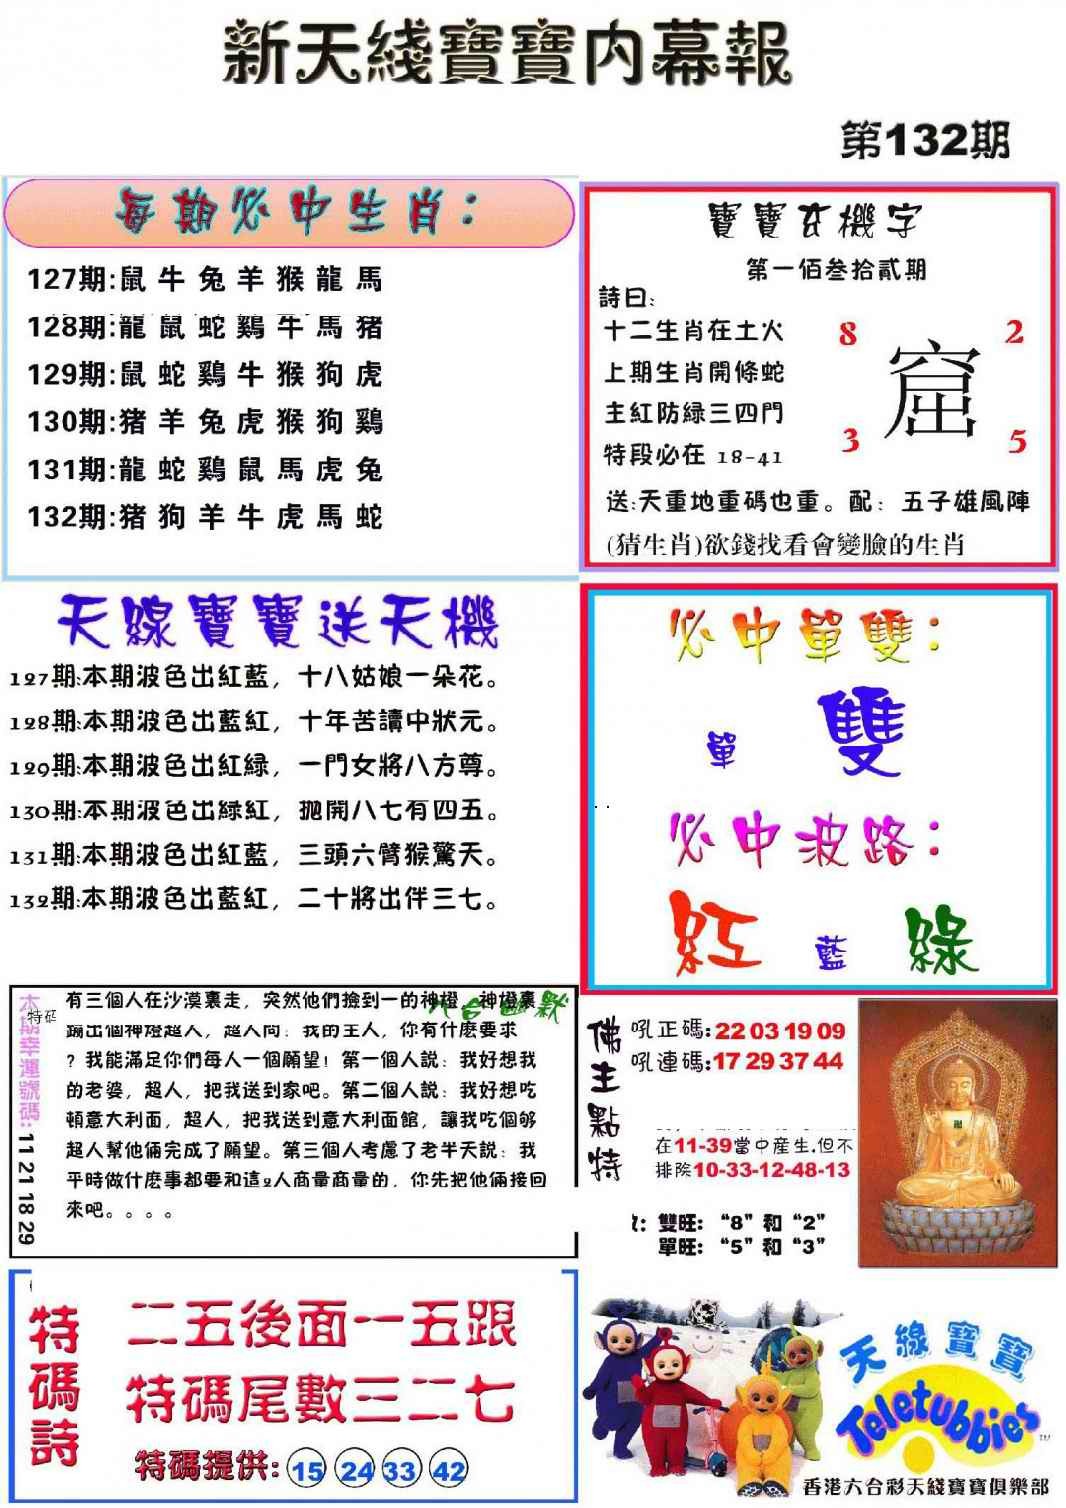 新天綫寶寶内幕報
第132期
每期必中生肖：
127期:鼠牛兔羊猴龍馬
128期:龍鼠蛇鷄牛馬猪
129期:鼠蛇鷄牛猴狗虎
130期:猪羊兔虎猴狗鷄
131期:龍蛇鷄鼠馬虎兔
132期:猪狗羊牛虎馬蛇
寶寶玄機字
第一佰叁拾貳期
詩曰:
十二生肖在土火
上期生肖開條蛇
主紅防緑三四門
特段必在 18-41
8 2
窟
3 5
送:天重地重碼也重。配：五子雄風陣
(猜生肖)欲錢找看會變臉的生肖
天線寶寶送天機
127期:本期波色出紅藍，十八姑娘一朵花。
128期:本期波色出藍紅，十年苦讀中狀元。
129期:本期波色出紅緑，一門女將八方尊。
130期:本期波色出緑紅，抛開八七有四五。
131期:本期波色出紅藍，三頭六臂猴驚天。
132期:本期波色出藍紅，二十將出伴三七。
必中單雙：
單 雙
必中波路：
紅 藍 綠
本期幸運號碼: 11 21 18 29
特码
六合幽默
有三個人在沙漠裏走，突然他們撿到一的神燈，神燈裏
踢出個神燈超人，超人問：我的主人，你有什麽要求
？我能滿足你們每人一個願望！第一個人説：我好想我
的老婆，超人，把我送到家吧。第二個人説：我好想吃
頓意大利面，超人，把我送到意大利面館，讓我吃個够
超人幫他倆完成了願望。第三個人考慮了老半天説：我
平時做什麽事都要和這2人商量商量的，你先把他倆接回
來吧。。。。
佛主點特
吼正碼:22 03 19 09
吼連碼:17 29 37 44
在11-39當中産生.但不
排除10-33-12-48-13
雙旺：“8”和“2”
單旺：“5”和“3”
特碼詩
二五後面一五跟
特碼尾數三二七
特碼提供: 15 24 33 42
天線寶寶
Teletubbies
TM
香港六合彩天綫寶寶俱樂部